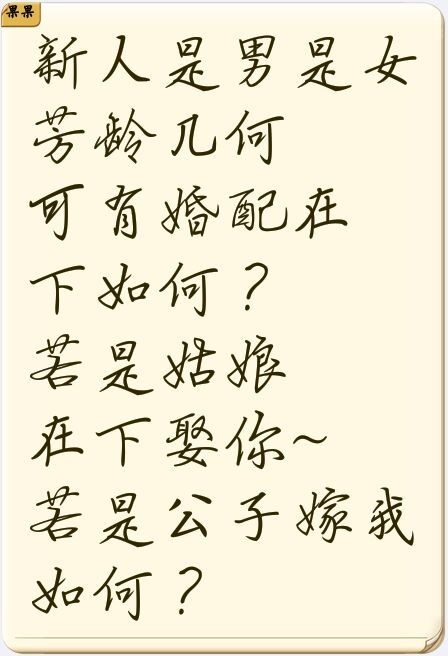 果果
新人是男是女
芳龄几何
可有婚配在
下如何？
若是姑娘
在下娶你~
若是公子嫁我
如何？